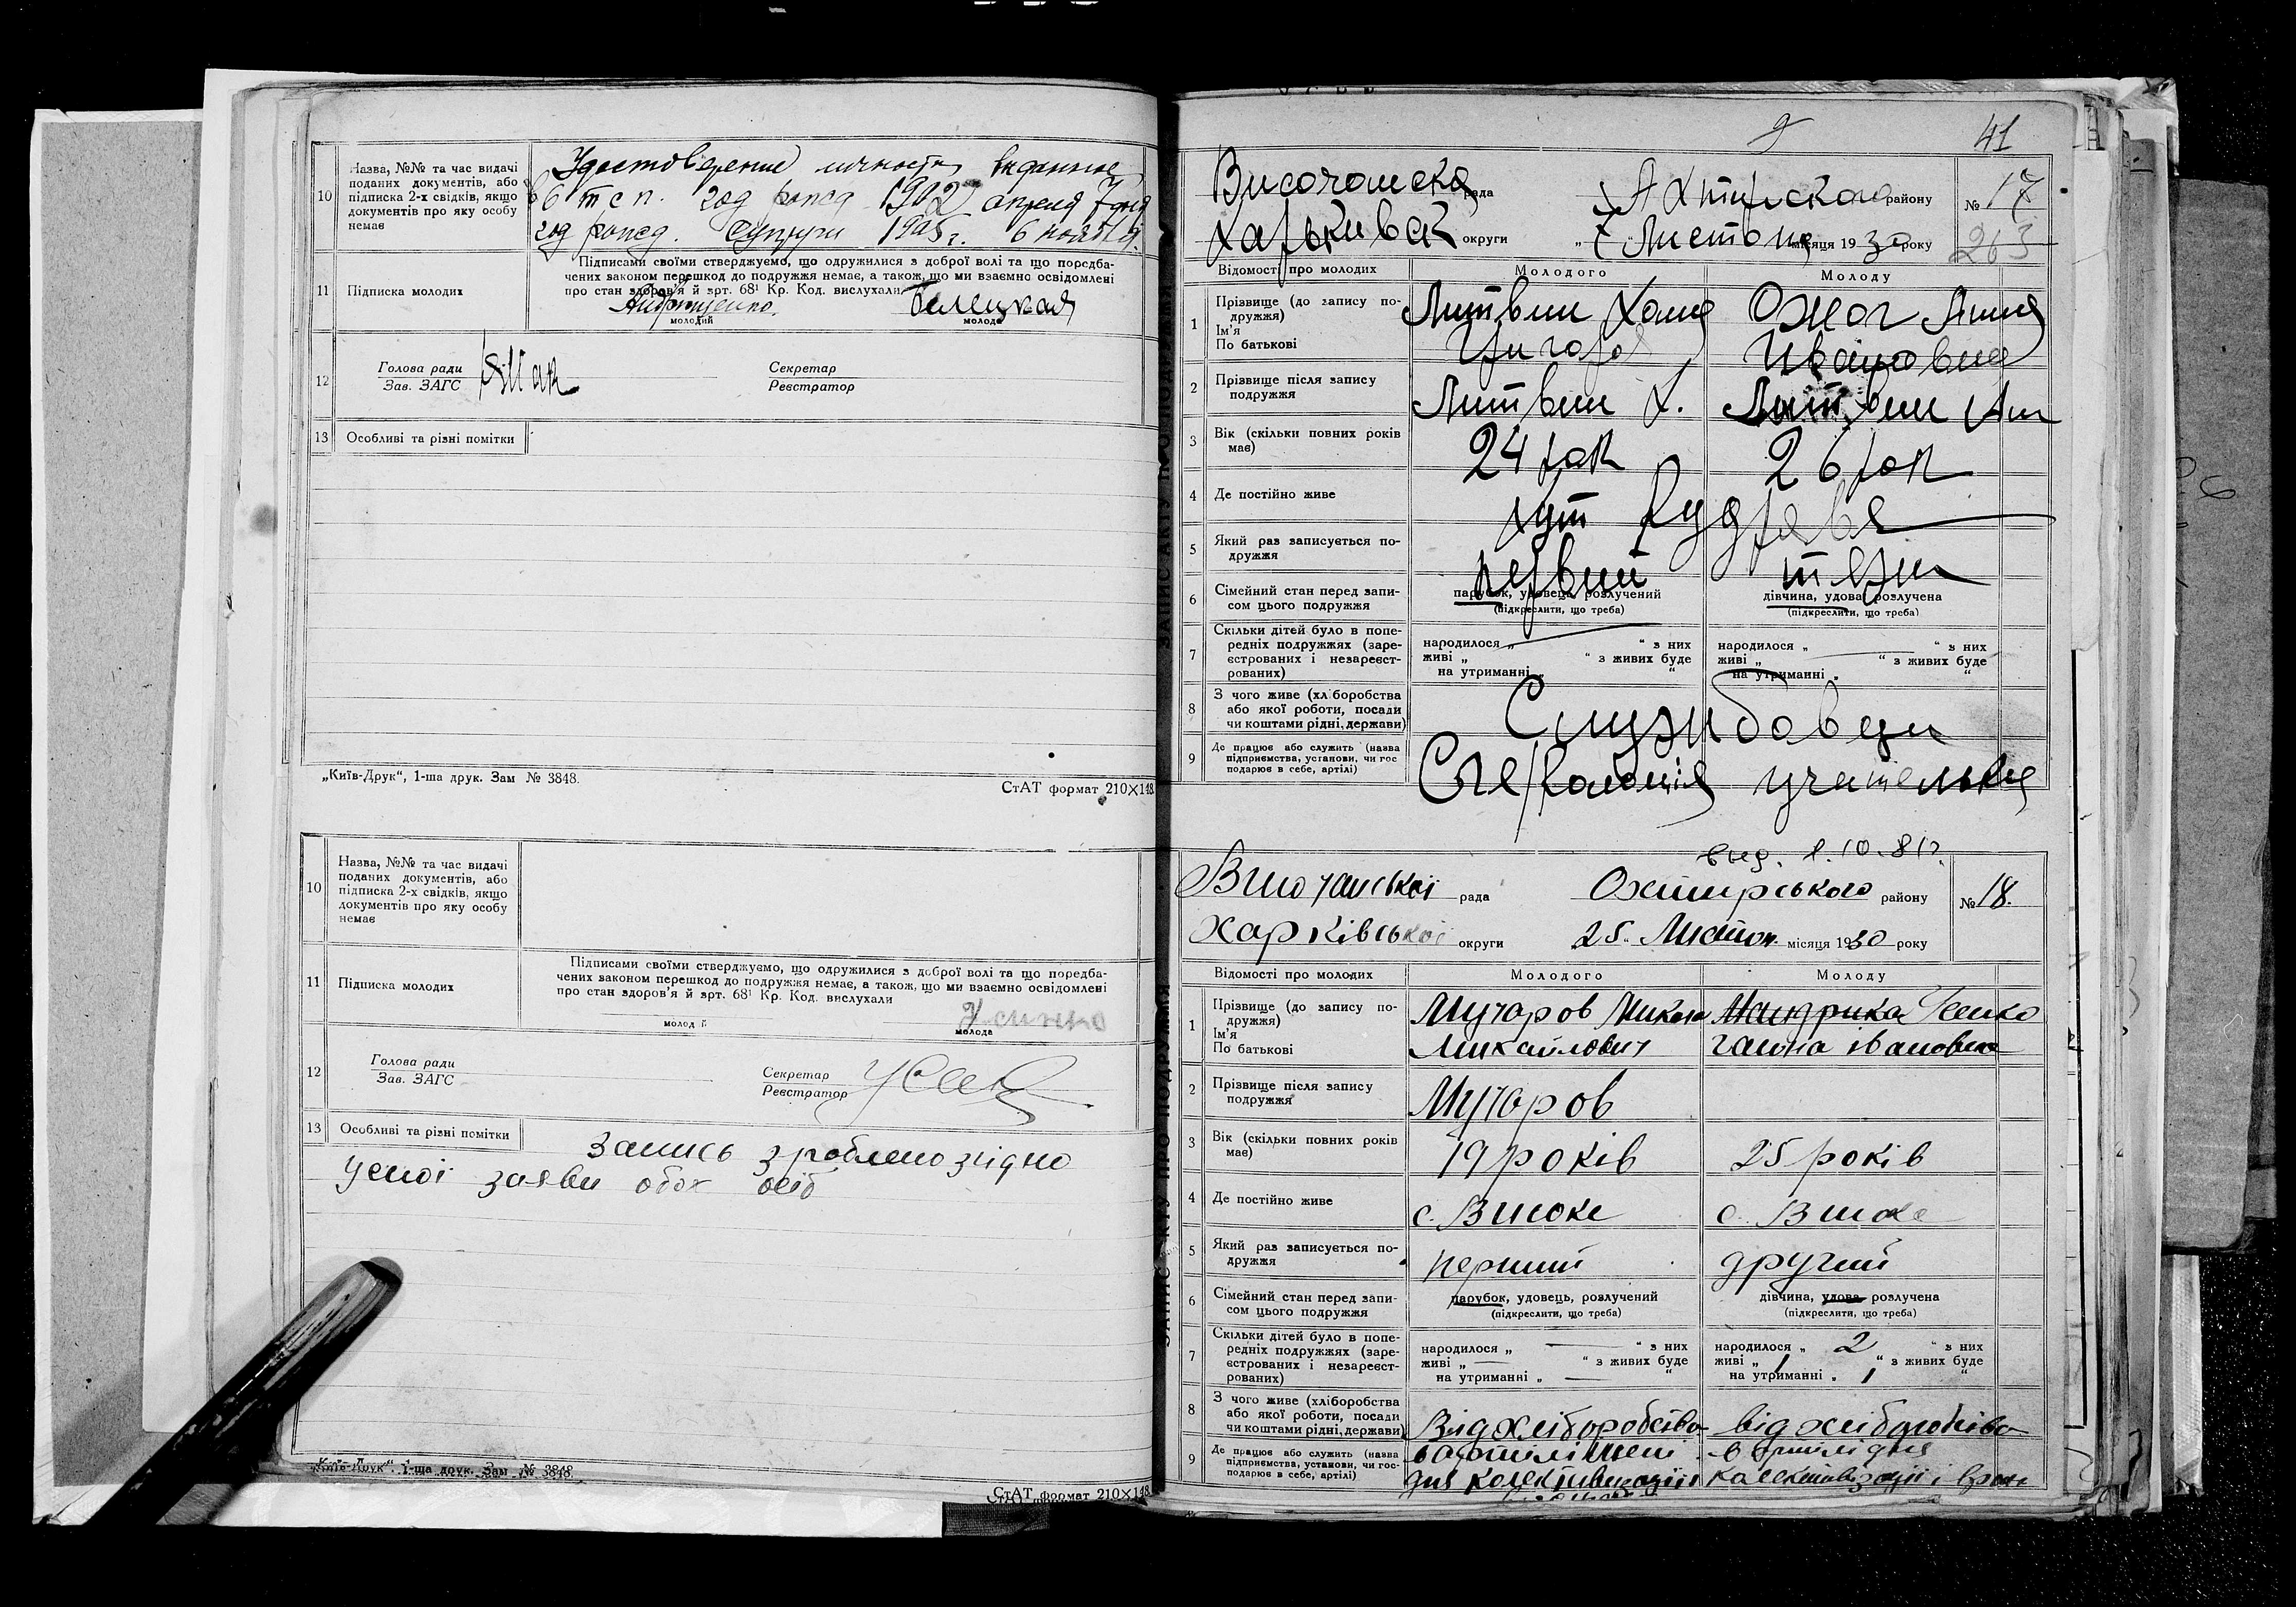 10
Назва, №№ та час видачі
поданих документів, або
підписка 2-х свідків, якщо
документів про яку особу
немає
Удостоверение личности выданное
год рожд 1902 апреля 7 дня
год рожд. Супруги 1905 г. 6 ноября.
11
Підписка молодих
Підписами своїми стверджуємо, що одружилися з доброї волі та що поредба-
чених законом перешкод до подружжя немає, а також, що ми взаємно освідомлені
про стан здоров'я й зрт. 68¹ Кр. Код. вислухали
Белецкая
молодий
молода
12
Голова ради
Зав. ЗАГС
Секретар
Реєстратор
13
Особливі та різні помітки
„Київ-Друк“, 1-ша друк. Зам № 3848.
СтАТ формат 210×148.
10
Назва, №№ та час видачі
поданих документів, або
підписка 2-х свідків, якщо
документів про яку особу
немає
11
Підписка молодих
Підписами своїми стверджуємо, що одружилися з доброї волі та що поредба-
чених законом перешкод до подружжя немає, а також, що ми взаємно освідомлені
про стан здоров'я й зрт. 68¹ Кр. Код. вислухали
молодий
молода
12
Голова ради
Зав. ЗАГС
Секретар
Реєстратор
13
Особливі та різні помітки
Запись зроблено згідно
усної заяви обох осіб
„Київ-Друк“. 1-ша друк. Зам № 3848.
СтАТ формат 210×148.
ЗАПИС АКТУ ПРО ПОДРУЖЖЯ
41
рада
району
№ 17
округи
„ 7 Листопа місяця 1930 року
263
Відомості про молодих
Молодого
Молоду
1
Прізвище (до запису по-
дружжя)
Ім'я
По батькові
Литвин Хома
Ожог Анна
Ивановна
2
Прізвище після запису
подружжя
Литвин Х.
Литвин Ан
3
Вік (скільки повних років
має)
24 рок
26 рок
4
Де постійно живе
хут Кудряве
5
Який раз записується по-
дружжя
первий
тежи
6
Сімейний стан перед запи-
сом цього подружжя
парубок, удовець, розлучений
(підкреслити, що треба)
дівчина, удова, розлучена
(підкреслити, що треба)
7
Скільки дітей було в попе-
редніх подружжях (заре-
єстрованих і незареєст-
рованих)
народилося „ “ з них
живі „ “ з живих буде
на утриманні „ “
народилося „ “ з них
живі „ “ з живих буде
на утриманні „ “
8
З чого живе (хліборобства
або якої роботи, посади
чи коштами рідні, держави)
Службовци
9
Де працює або служить (назва
підприємства, установи, чи гос
подарює в себе, артілі)
учителька
выд. 1.10.81г.
рада
Охтирського району
№ 18.
Харківської округи
25 Листоп. місяця 1930 року
Відомості про молодих
Молодого
Молоду
1
Прізвище (до запису по-
дружжя)
Ім'я
По батькові
Мучаров Микола
Михайлович
Ганна Івановна
2
Прізвище після запису
подружжя
Мучаров
3
Вік (скільки повних років
має)
19 років
25 років
4
Де постійно живе
с. Високе
с. Високе
5
Який раз записується по-
дружжя
перший
другий
6
Сімейний стан перед запи-
сом цього подружжя
парубок, удовець, розлучений
(підкреслити, що треба)
дівчина, удова, розлучена
(підкреслити, що треба)
7
Скільки дітей було в попе-
редніх подружжях (заре-
єстрованих і незареєст-
рованих)
народилося „ “ з них
живі „ “ з живих буде
на утриманні „ “
народилося „ 2 “ з них
живі „ 1 “ з живих буде
на утриманні „ 1 “
8
З чого живе (хліборобства
або якої роботи, посади
чи коштами рідні, держави)
Від хліборобства
від хліборобства
9
Де працює або служить (назва
підприємства, установи, чи гос-
подарює в себе, артілі)
в артілі
в артілі